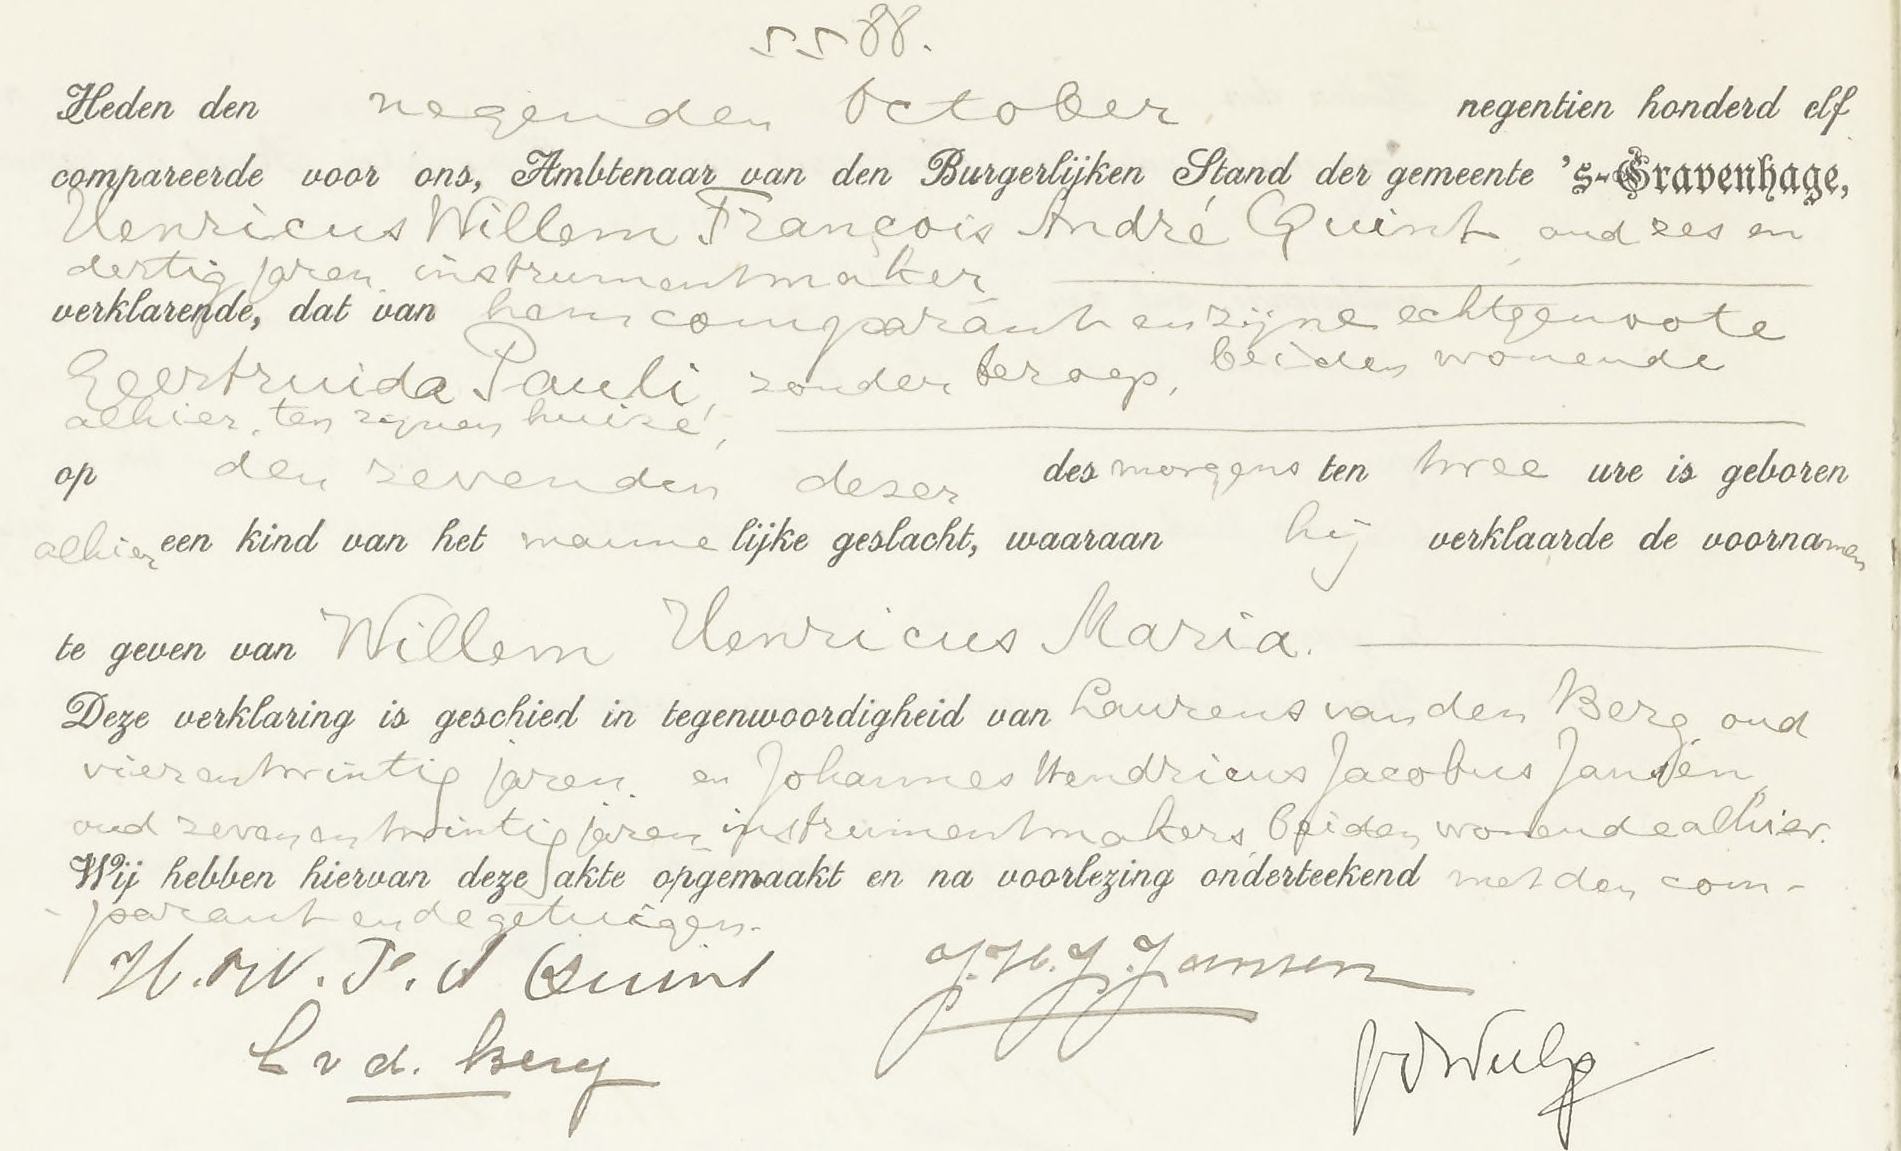 5588.
Heden den negenden October negentien honderd elf
compareerde voor ons, Ambtenaar van den Burgerlijken Stand der gemeente 's-Gravenhage,
Henricus Willem François André Quint, oud zes en
dertig jaren, instrumentmaker
verklarende, dat van hem comparant en zijne echtgenoote
Geertruida Pauli, zonder beroep, beiden wonende
alhier, ten zijnen huize,
op den zevenden dezer des morgens ten twee ure is geboren
alhier een kind van het mannelijke geslacht, waaraan hij verklaarde de voornamen
te geven van Willem Henricus Maria.
Deze verklaring is geschied in tegenwoordigheid van Laurens van den Berg, oud
vierentwintig jaren, en Johannes Hendricus Jacobus Jansen,
oud zevenentwintig jaren, instrumentmakers, beiden wonende alhier.
Wij hebben hiervan deze akte opgemaakt en na voorlezing onderteekend met den com-
parant en de getuigen.
H. W. F. A Quint J. H. J. Jansen
L v d. Berg JvdWulp